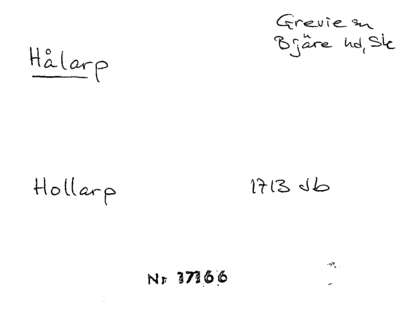 Grevie sn
Bjäre hd, Sk
Hålarp
Hollarp 1713 Jb
Nr 17166